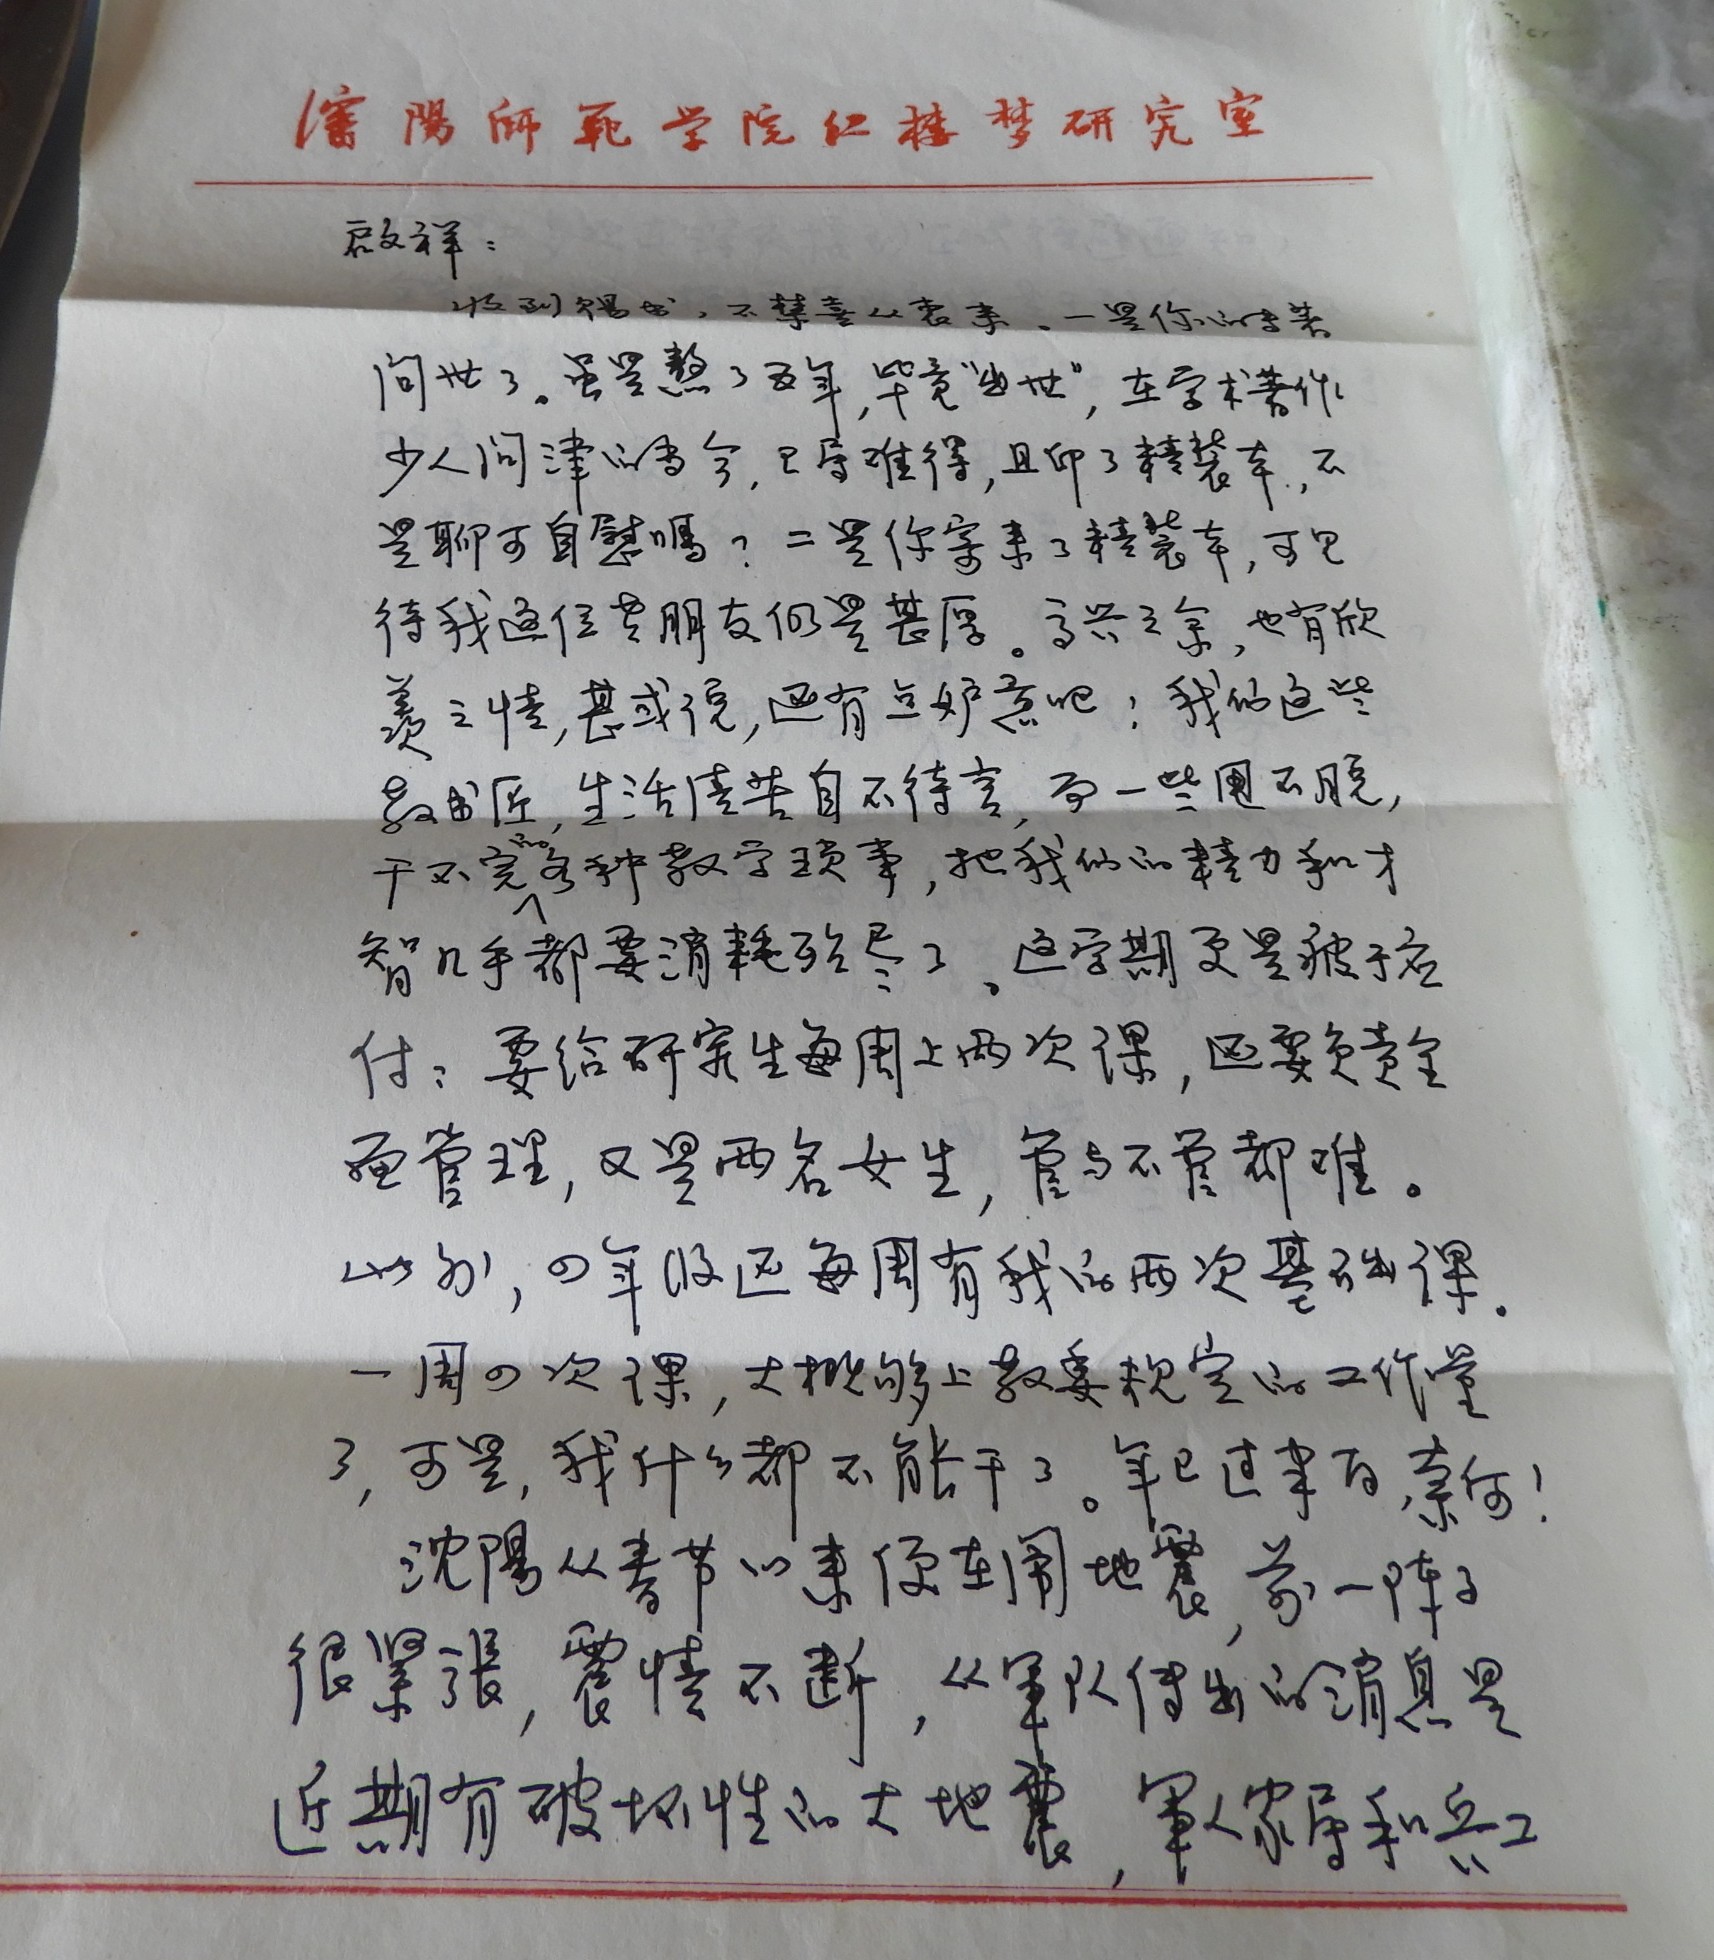 瀋陽師範学院红楼梦研究室
啟祥：
收到赐书，不禁喜从衷来。一是你的专著
问世了。虽是熬了五年，毕竟“出世”，在学术著作
少人问津的当今，已属难得，且印了精装本，不
是聊可自慰嗎？二是你寄来了精装本，可见
待我这位老朋友仍是甚厚。高兴之余，也有欣
羡之情，甚或说，还有点妒意吧！我们这些
教书匠，生活清苦自不待言，而一些甩不脱，
干不完的各种教学琐事，把我们的精力和才
智几乎都要消耗殆尽了。这学期更是疲于应
付：要给研究生每周上两次课，还要负责全
面管理，又是两名女生，管与不管都难。
此外，四年级还每周有我的两次基础课。
一周四次课，大概够上教委规定的工作量
了，可是，我什么都不能干了。年已过半百，奈何！
沈陽从春节以来便在闹地震，前一阵子
很紧張，震情不断，从軍队传出的消息是
近期有破坏性的大地震，軍人家属和兵工